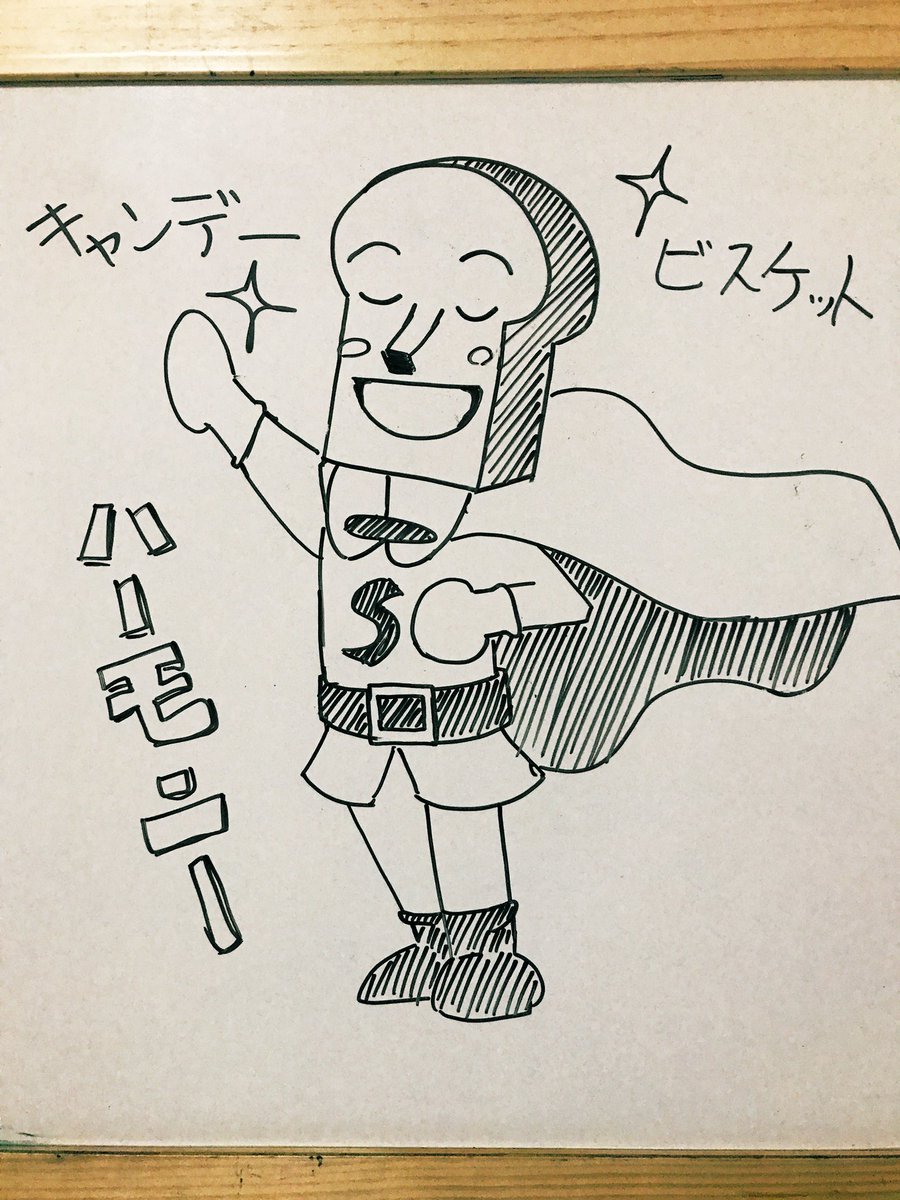 キャンデー
ビスケット
ハーモニー
S